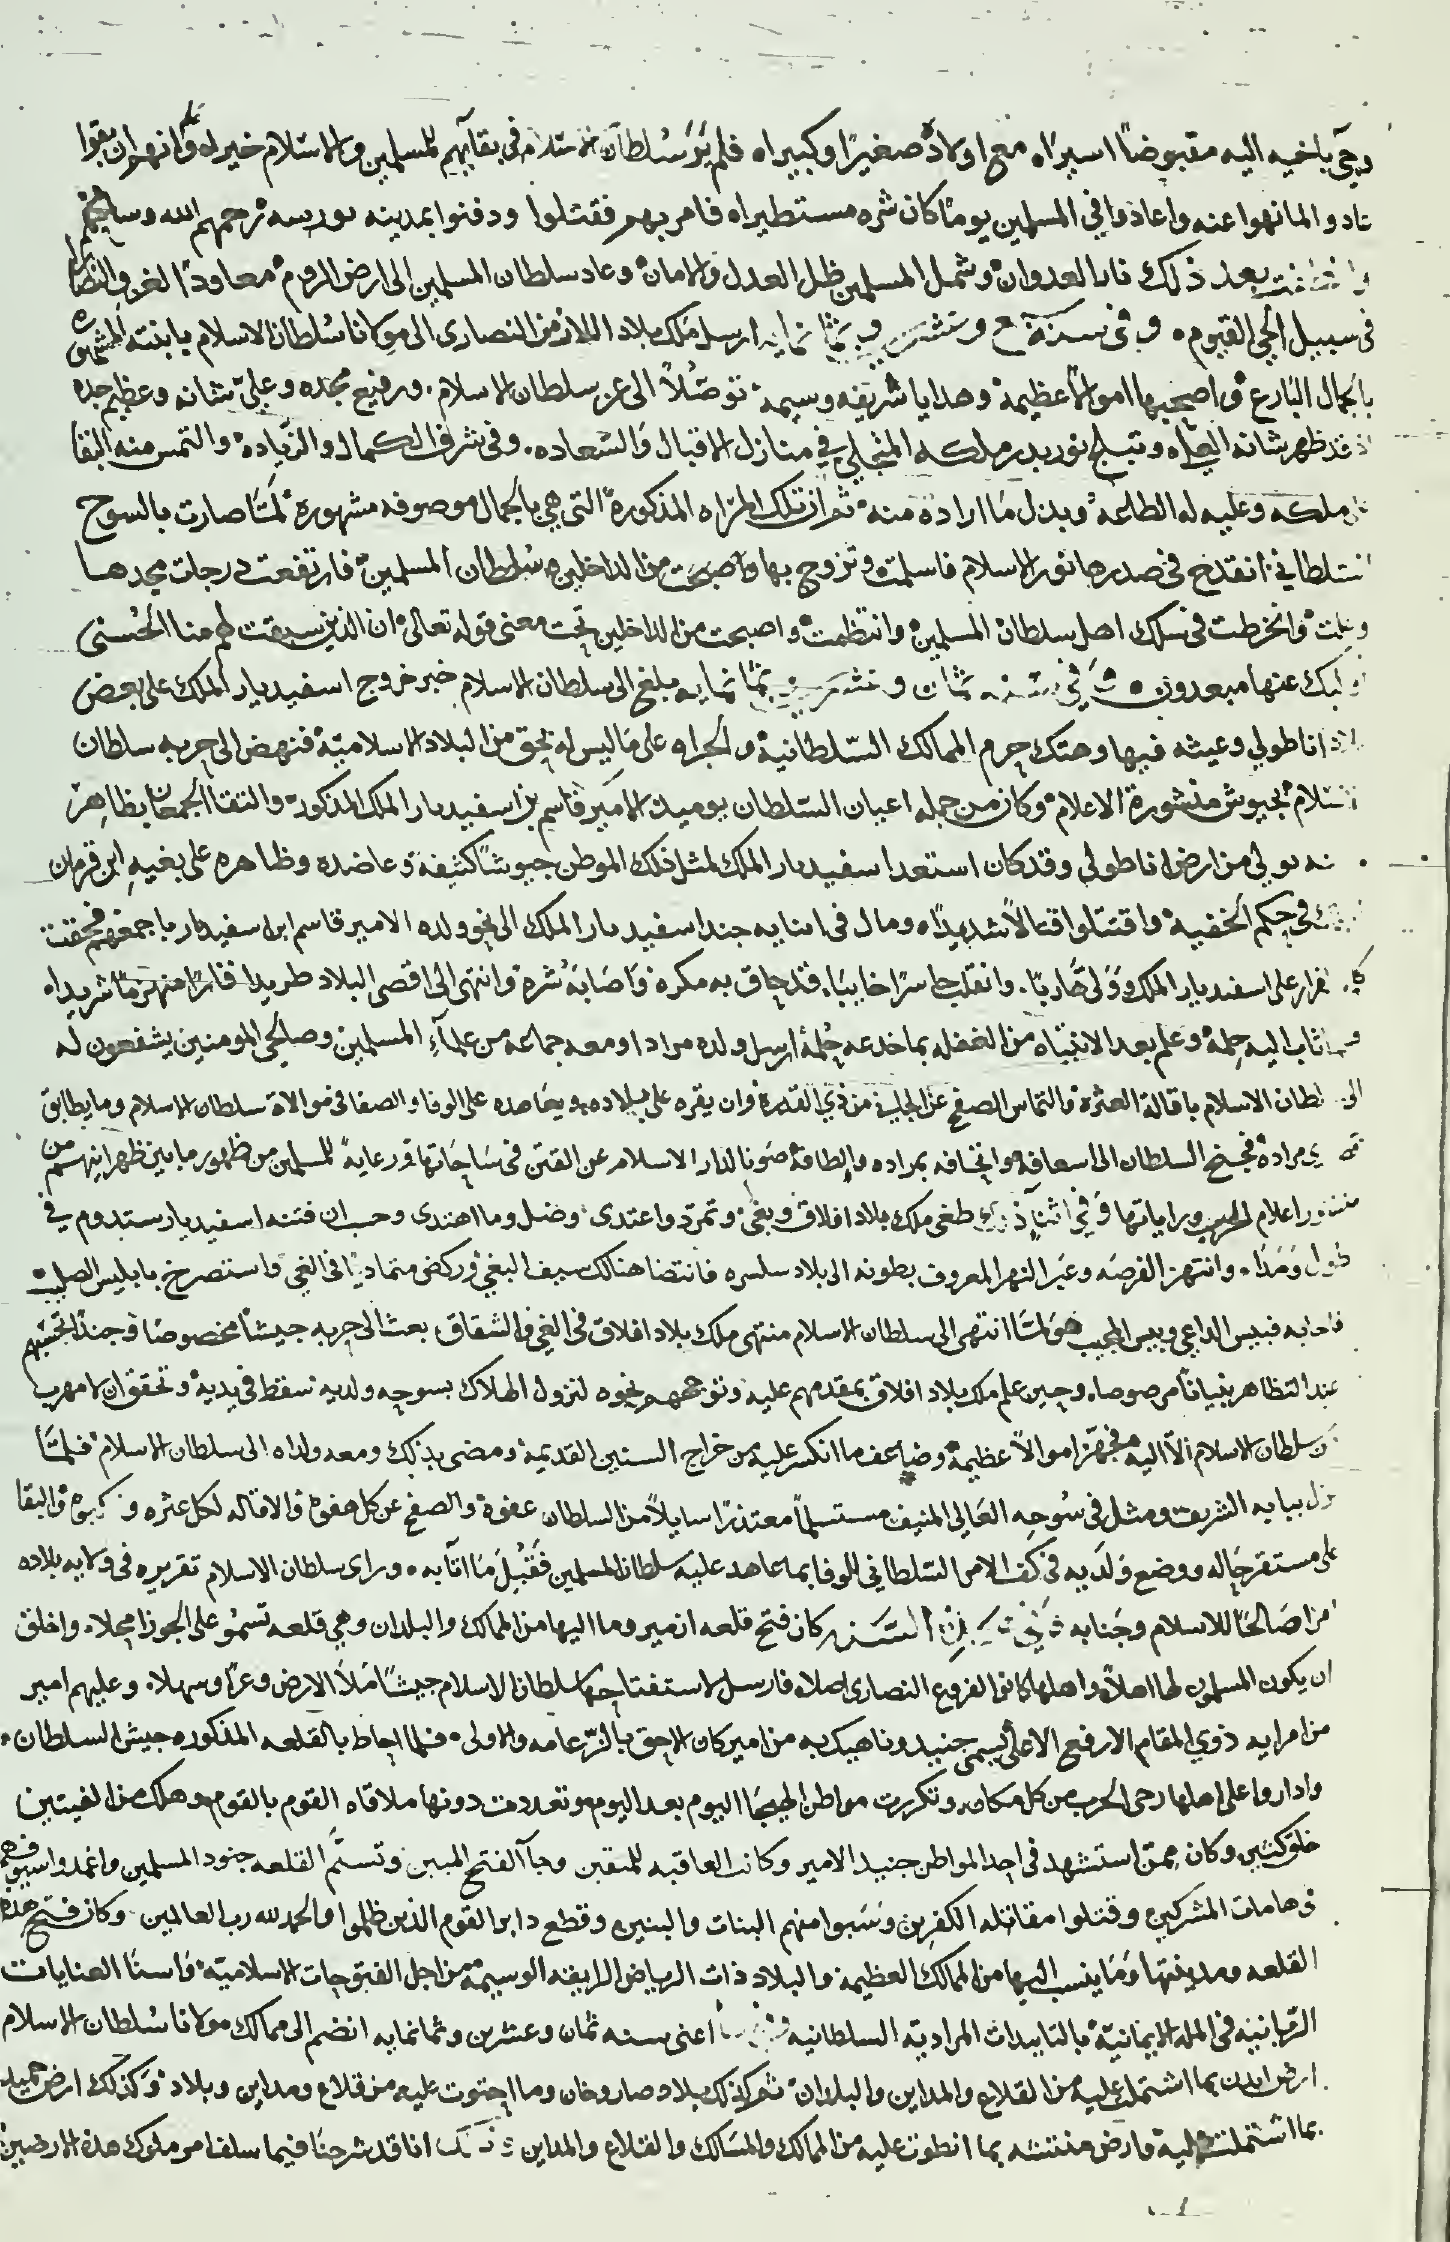 وجيء باخيه اليه مقبوضا اسيرا مع اولاده صغيرا وكبيرا فلم ير سلطان الاسلام في بقايهم للمسلمين والاسلام خيرا وعلم انهم ان بقوا
عادوا لما نهوا عنه واعادوا في المسلمين يوما كان شره مستطيرا فامر بهم فقتلوا ودفنوا بمدينه بورسه رحمهم الله وسامحهم
بعد ذلك نار العدوان وشمل المسلمين ظل العدل والامان وعاد سلطان المسلمين الى ارض الروم معاودا الغزو
في سبيل الحي القيوم وفي سنة وعشرين وثمانمايه ارسل ملك بلاد اللاز من النصارى الى مولانا سلطان الاسلام بابنته المشهوره
بالجمال البارع واصحبها اموالا عظيمة وهدايا شريفه وسيمة توصلا الى عز سلطان الاسلام ورفيع مجده وعلي شانه وعظيم جده
اذ قد ظهر شانه العلاه وتبلج نور بدر ملكه المنجلي في منازل الاقبال والسعاده وفي شرف الكمال والزياده والتمس منه البقا
على ملكه وعليه له الطاعة وبذل ما اراده منه ثم ان تلك المراه المذكورة التي هي بالجمال موصوفه مشهورة لما صارت بالسوح
السلطاني انقدح في صدرها نور الاسلام فاسلمت وتزوج بها واصبحت من الداخلين سلطان المسلمين فارتفعت درجات مجدها
وعلت وانخرطت في سلك اهل سلطان المسلمين وانتظمت واصبحت من الداخلين تحت معنى قوله تعالى ان الذين سبقت لهم منا الحسنى
اوليك عنها مبعدون وفي سنه ثمان وعشرين وثمانمايه بلغ الى سلطان الاسلام خبر خروج اسفيديار الملك على بعض
بلاد اناطولي وعيثه فيها وهتك حرم الممالك السلطانية والجراه على ما ليس له بحق من البلاد الاسلامية فنهض الى حربه سلطان
الاسلام بجيوش منشورة الاعلام وكان من جمله اعيان السلطان يوميذ الامير قاسم بن اسفيديار الملك المذكور والتقا الجمعان بظاهر
من ارض اناطولي وقد كان استعد اسفيديار الملك لمثل ذلك الموطن جيوشا كثيفة وعاضده وظاهره على بغيه ابن قرمان
في حكم الخفية واقتتلوا قتالا شديدا ومال في اثنايه جند اسفيديار الملك الى نحو ولده الامير قاسم ابن اسفيديار باجمعهم فحققت
الفرار على اسفنديار الملك وولى هاربا وانقلب خاسرا خايبا قد حاق به مكره واصابه شره وانتهى الى اقصى البلاد طريدا فارا منهزما شريدا
ثاب اليه حلمه وعلم بعد الانتباه من الغفله بما خدعه حلمه ارسل ولده مرادا ومعه جماعه من علمآء المسلمين وصالحي المومنين يشفعون له
الى سلطان الاسلام باقالة العثرة والتماس الصفح عن الجليه من ذي القدرة وان يقره على بلاده ويعاهده على الوفا والصفا في موالاة سلطان الاسلام وما يطابق
مراده فجنح السلطان الى اسعافه واتحافه بمراده والطافه صونا لدار الاسلام عن الفتن في ساحاتها ورعاية للمسلمين من ظهور ما بين ظهرانيهم من
منشور اعلام الحرب وراياتها وفي اثنآ ذلك طغى ملك بلاد افلاق وبغى وتمرد واعتدى وضل وما اهتدى وحسب ان فتنه اسفيديار ستدوم في
طول ومدا وانتهز الفرصه وعبر النهر المعروف بطونه الى بلاد سلسره فانتضا هنالك سيف البغي وركض متماديا في الغي واستصرخ بابليس الصليب
فاجابه فبيس الداعي وبيس المجيب ولما انتهى الى سلطان الاسلام منتهى ملك بلاد افلاق في الغي والشقاق بعث الى حربه جيشا مخصوصا وجندا تحسبهم
عند التظاهر بنيانا مرصوصا وحين علم ملك بلاد افلاق بمقدمهم عليه وتوجههم نحوه لنزول الهلاك بسوحه ولديه سقط في يديه وتحقق ان لا مهرب
من سلطان الاسلام الا اليه فجهز اموالا عظيمة وضاعف ما انكسر عليه من خراج السنين القديمة ومضى بذلك ومعه ولداه الى سلطان الاسلام فلما
نزل ببابه الشريف ومثل في سوحه العالي المنيف مستسلما معتذرا سايلا من السلطان عفوة والصفح عن كل هفوة والاقاله لكل عثره و كبوه والبقا
على مستقر حاله ووضع ولديه في كف الامر السلطاني للوفا بما عاهد عليه سلطان المسلمين فقبل ما اتا به وراى سلطان الاسلام تقريره في ولايه بلاده
امرا صالحا للاسلام وجنابه السنه كان فتح قلعه ازمير وما اليها من الممالك والبلدان وهي قلعه تسمو على الجوزا محلا واخلق
ان يكون المسلمون لها اهلا واهلها كانوا لفروع النصارى اصلا فارسل لاستفتاحها سلطان الاسلام جيشا ملا الارض وعرا وسهلا وعليهم امير
من امرايه ذوي المقام الارفع الاعلى يسمى جنيد وناهيك به من امير كان الاحق بالزعامه والاولى فلما احاط بالقلعه المذكوره جيش السلطان
واداروا على اهلها رحى الحرب من كل مكان وتكررت مواطن الهيجا اليوم بعد اليوم وتعددت دونها ملاقاه القوم بالقوم وهلك من الفيتين
خلق كثير وكان ممن استشهد في احد المواطن جنيد الامير وكانت العاقبه للمتقين وجآ الفتح المبين وتسنم القلعه جنود المسلمين واغمدوا سيوفهم
في هامات المشركين وقتلوا مقاتله الكفرين وسبوا منهم البنات والبنين وقطع دابر القوم الذين ظلموا والحمد لله رب العالمين وكان فتح هذه
القلعه ومدينتها وما ينسب اليها من الممالك العظيمة والبلاد ذات الرياض الرايقه الوسيمة من اجل الفتوحات الاسلامية واسنا العنايات
الربانيه في المله الايمانية بالتاييدات المراديه السلطانيه اعنى سنه ثمان وعشرين وثمانمايه انضم الى ممالك مولانا سلطان الاسلام
ارض ايدين بما اشتملت عليه من القلاع والمداين والبلدان ثم كذلك بلاد صاروخان وما احتوت عليه من قلاع ومداين وبلاد وكذلك ارض حميد
بما اشتملت عليه وارض منتشه بما انطوت عليه من الممالك والمسالك والقلاع والمداين انا قد شرحنا فيما سلف امر ملوك هذه الارضين